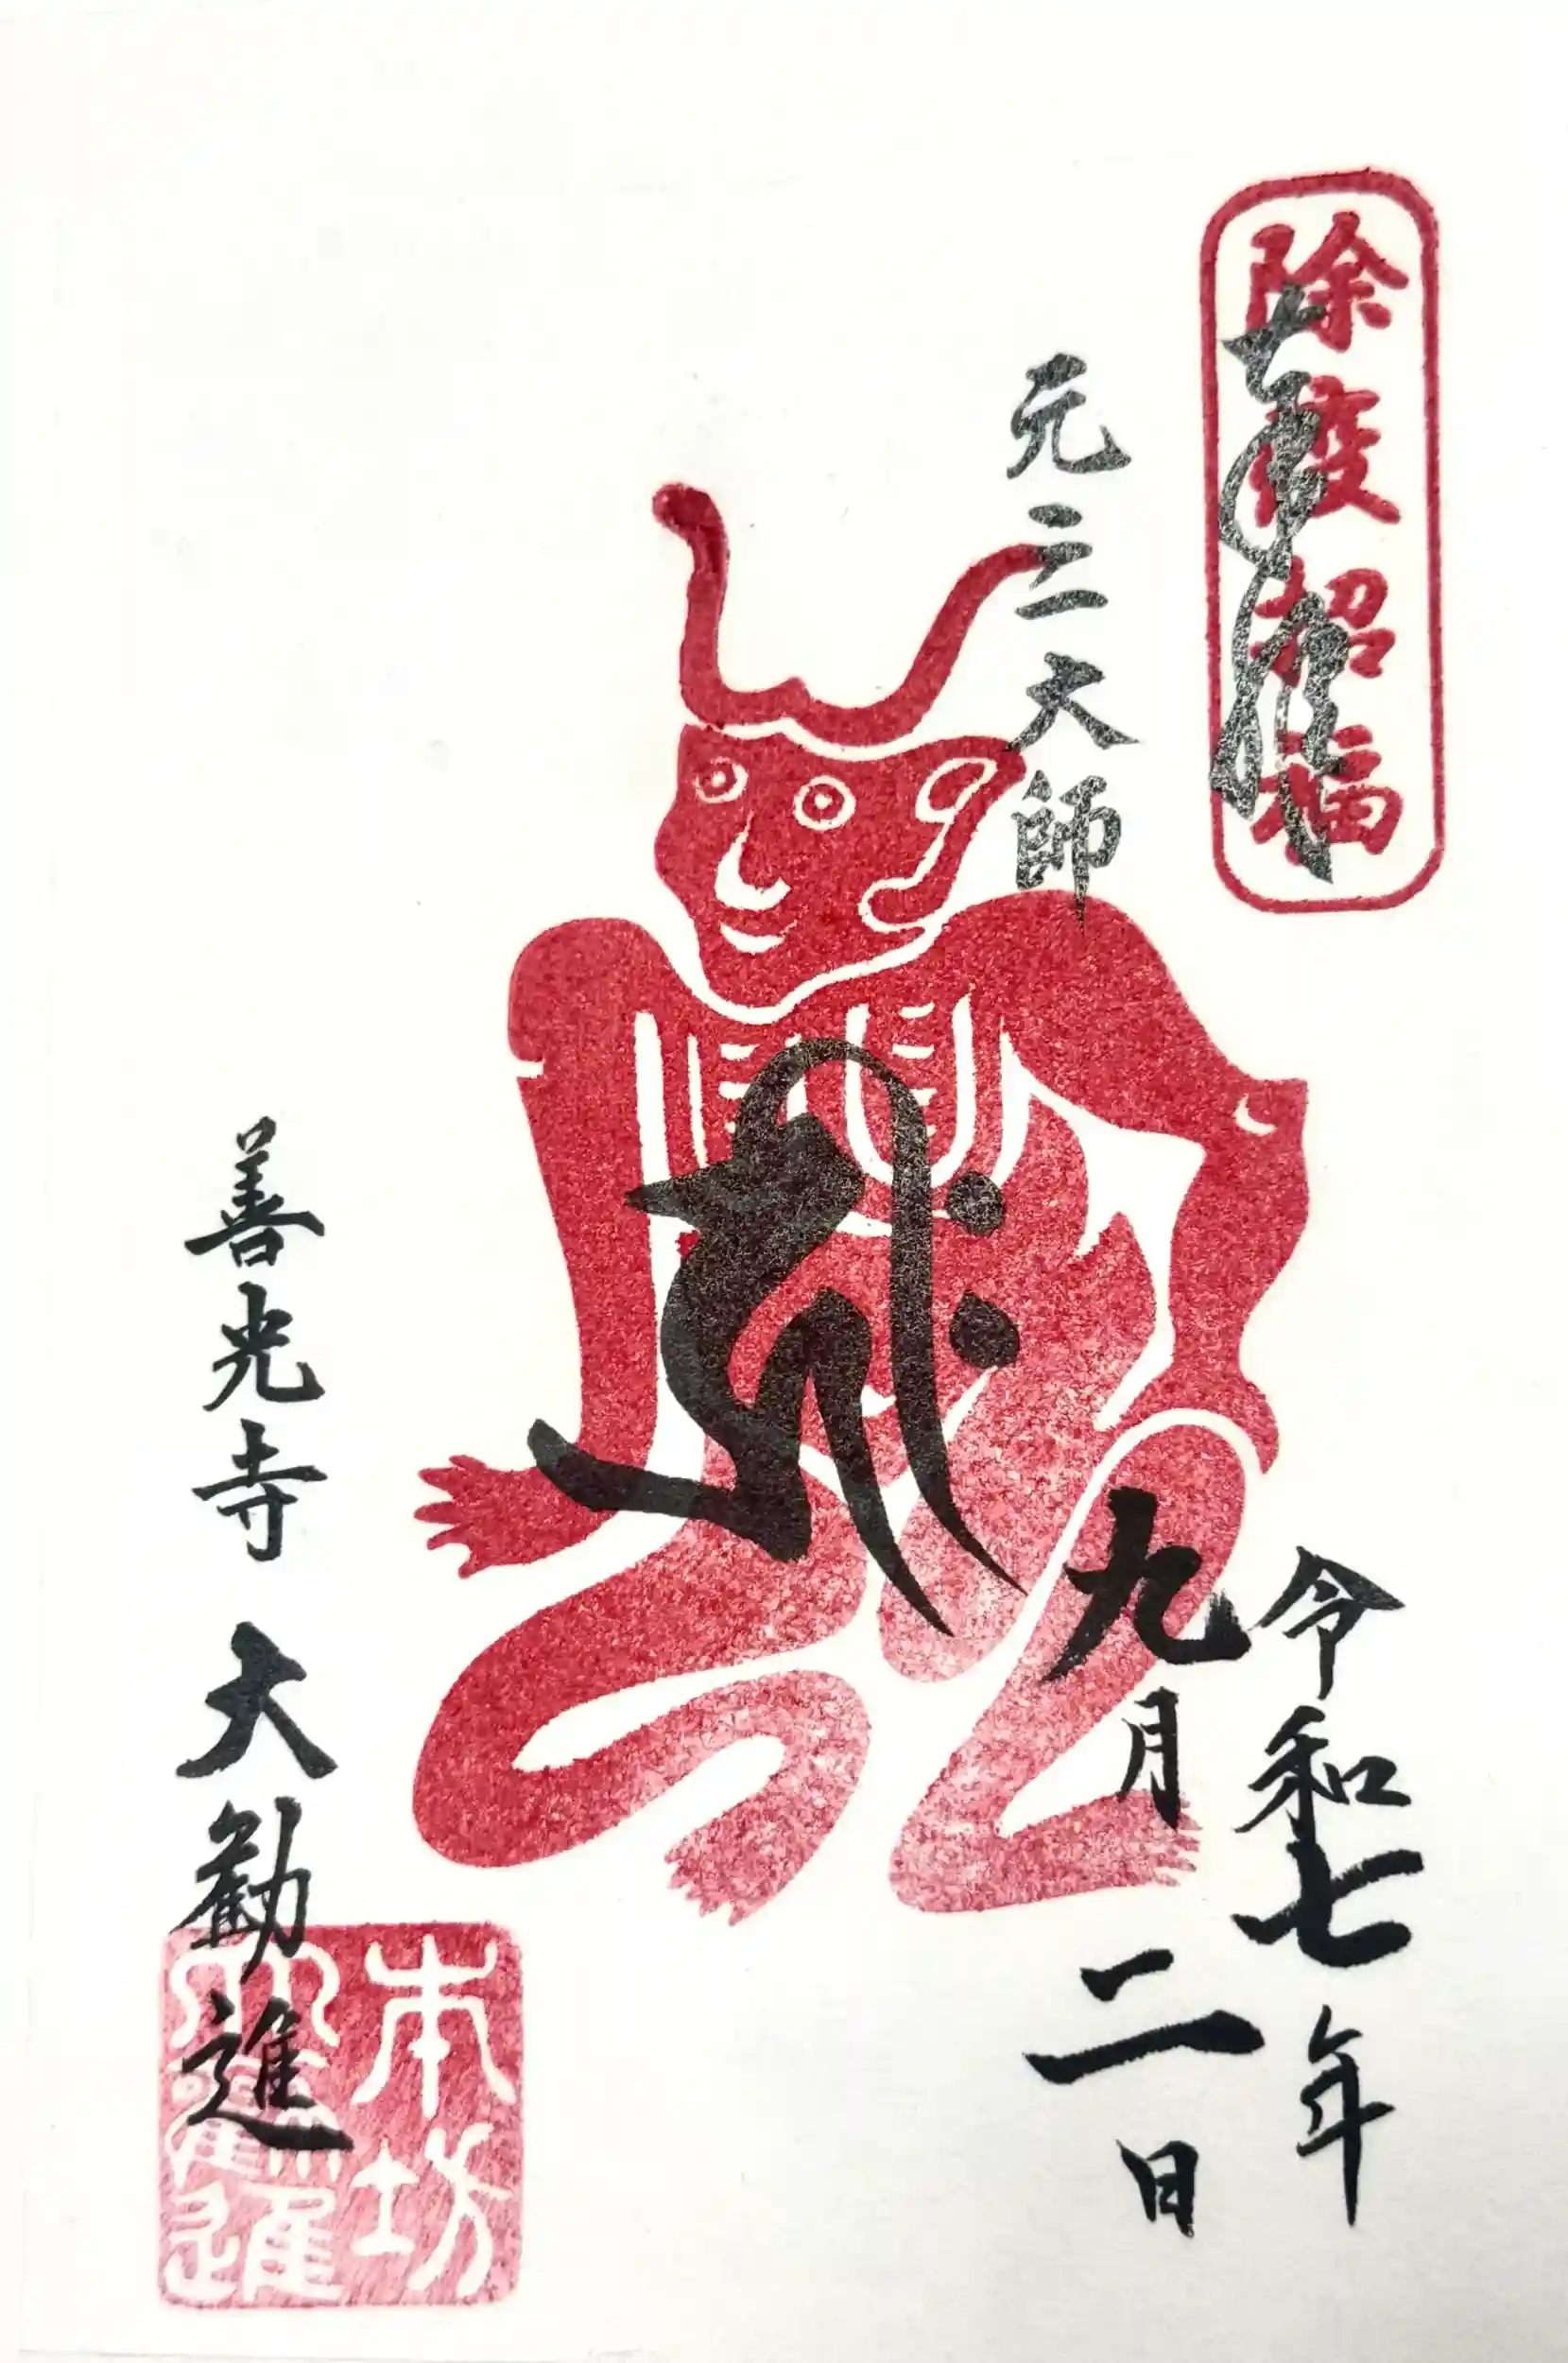 除疫招福
奉拝
元三大師
令和七年
九月二日
善光寺 大勧進
本坊
大勸進